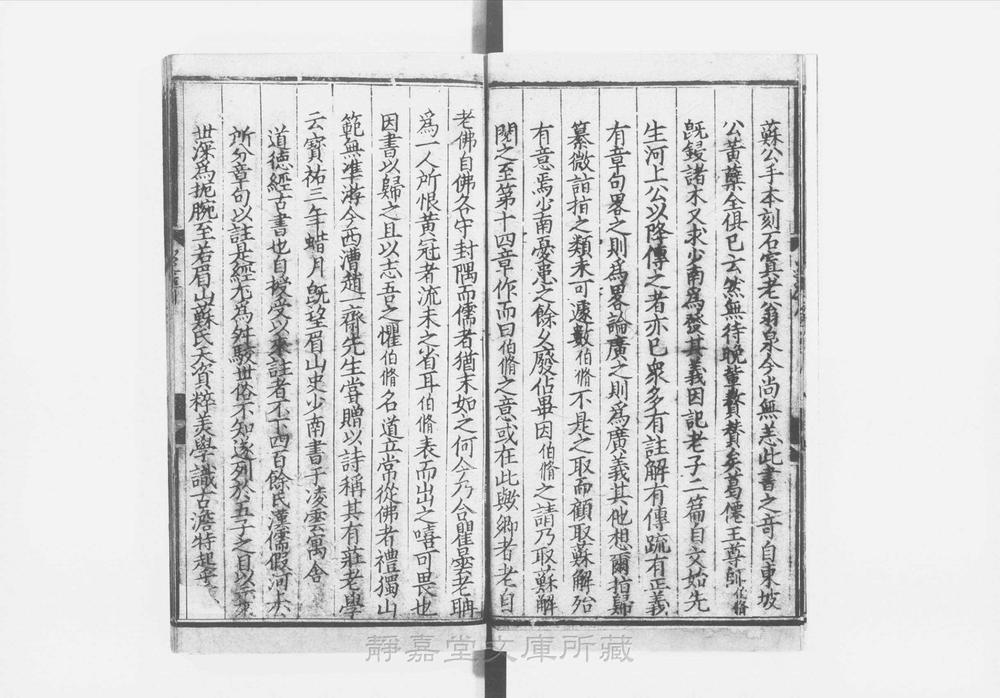 蘇公手本刻石寘老翁泉今尚無恙此書之竒自東坡
公黃蘗全俱已云然無待晚輩贅賛矣葛僊王尊師伯脩
旣鋟諸木又求少南爲發其義因記老子二篇自文始先
生河上公以降傳之者亦已衆多有註解有傳䟽有正義
有章句畧之則爲畧論廣之則爲廣義其他想爾指歸
纂微詣指之類未可遽數伯脩不是之取而顧取蘇解殆
有意焉少南憂患之餘久廢佔畢因伯脩之請乃取蘇解
閱之至第十四章作而曰伯脩之意或在此歟鄉者老自
老佛自佛各守封隅而儒者猶末如之何今乃合瞿曇老聃
爲一人所恨黃冠者流未之省耳伯脩表而出之嘻可畏也
因書以歸之且以志吾之懼伯脩名道立常從佛者禮獨山
範無準游今西漕趙一齋先生嘗贈以詩稱其有莊老學
云寳祐三年蜡月旣望眉山史少南書于凌雲寓舎
道德經古書也自授受以來註者不下四百餘氏漢儒假河上
所分章句以註是經尤爲舛駮世俗不知遂列於五子之目以
世深爲扼腕至若眉山蘇氏天資粹美學識古澹特起
靜嘉堂文庫所藏